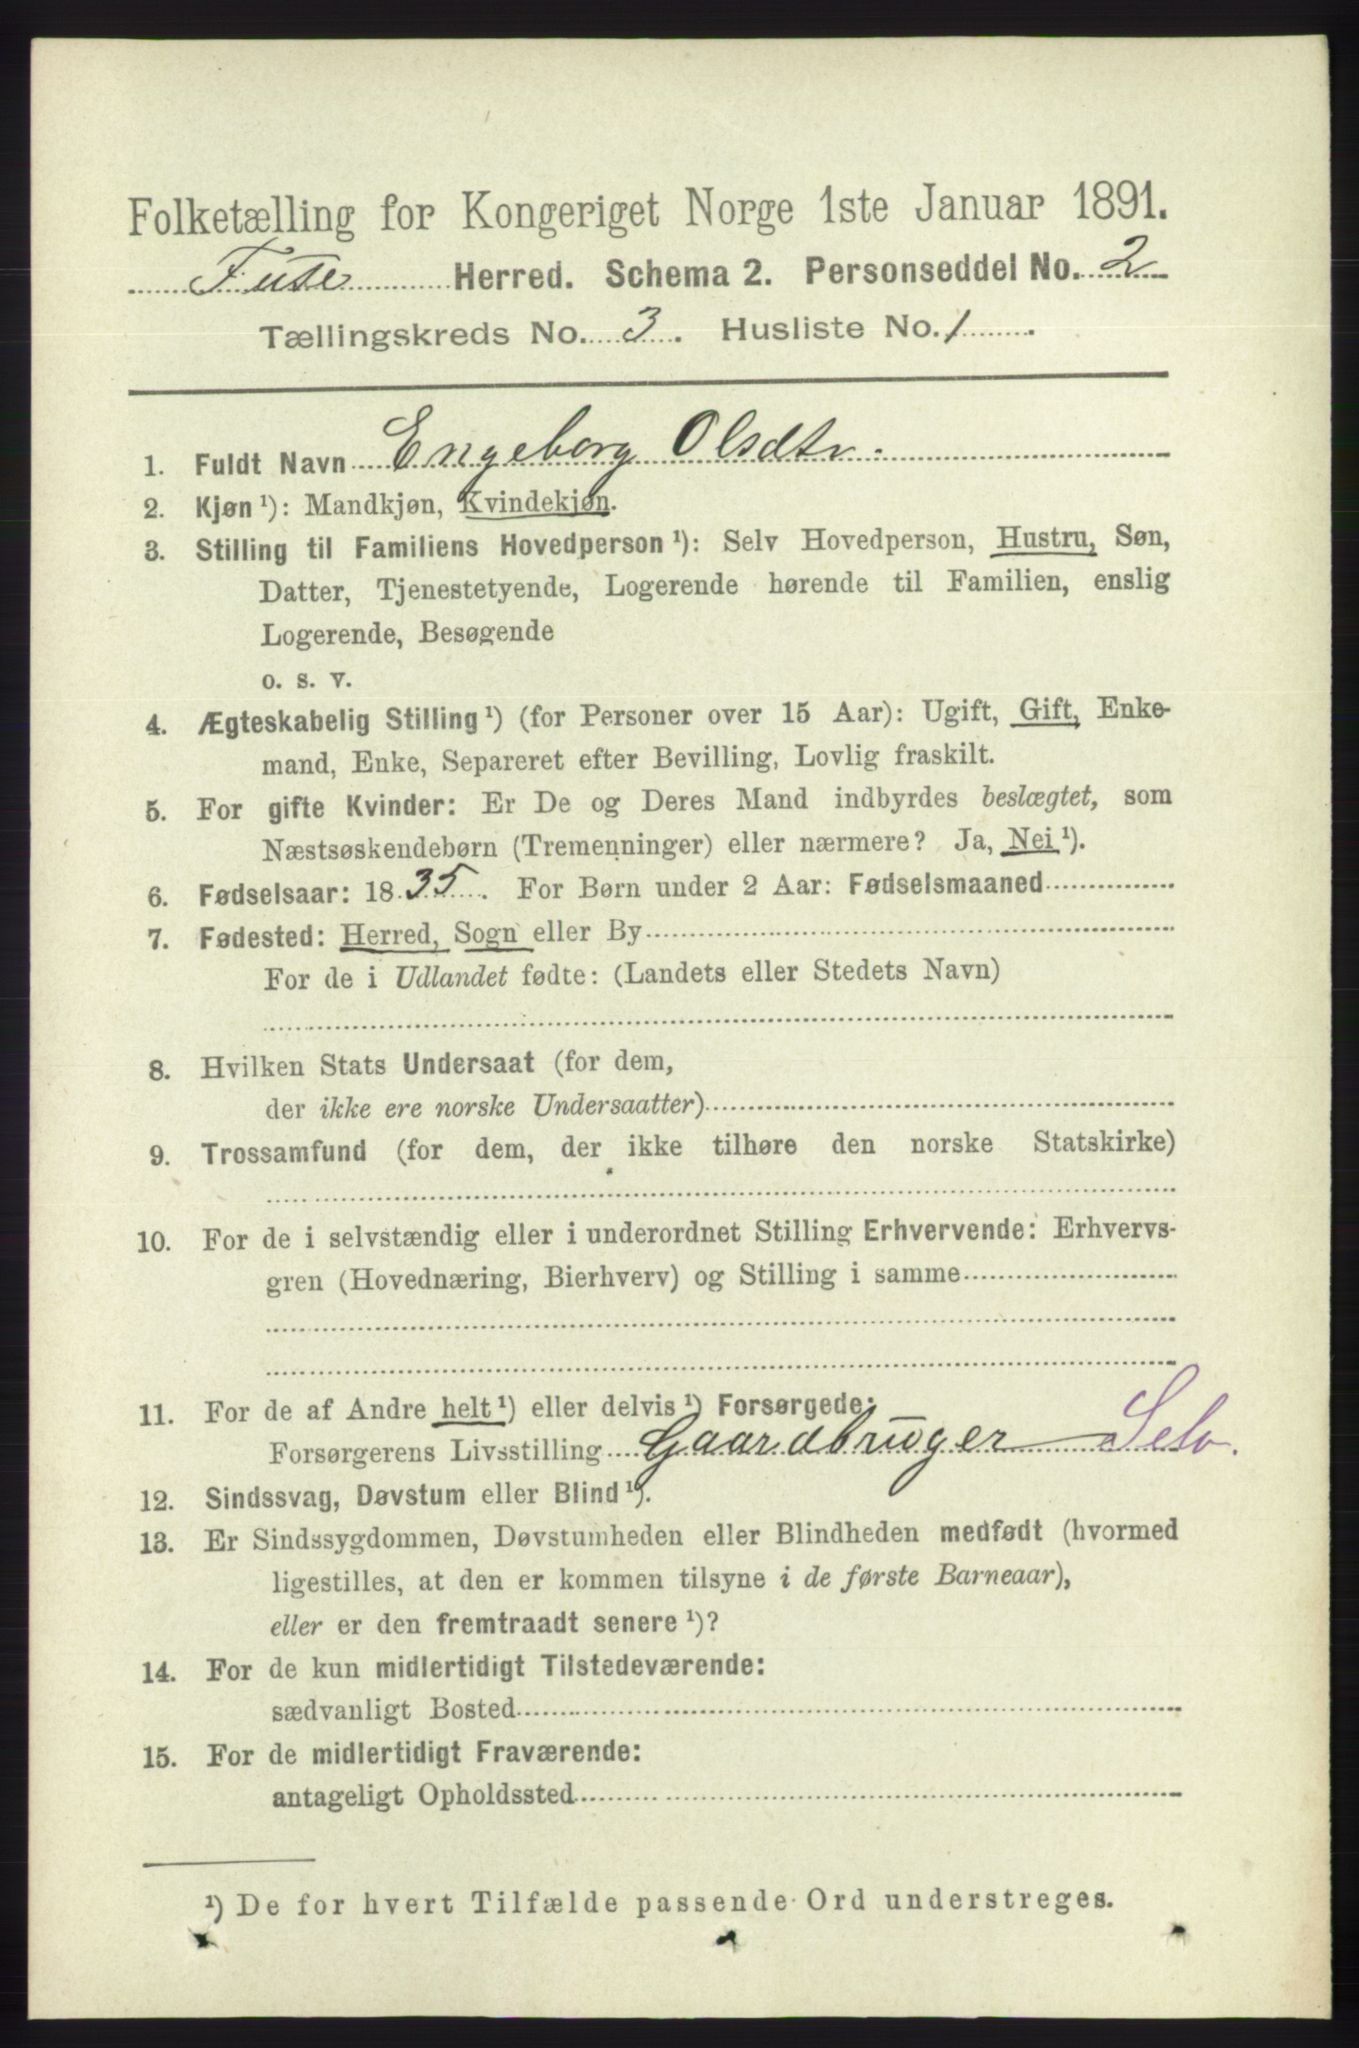 Folketælling for Kongeriget Norge 1ste Januar 1891.
Fuse Herred. Schema 2. Personseddel No. 2
Tællingskreds No. 3. Husliste No. 1
1. Fuldt Navn Engeborg Olsdtr.
2. Kjøn ¹): Mandkjøn, Kvindekjøn.
3. Stilling til Familiens Hovedperson ¹): Selv Hovedperson, Hustru, Søn,
Datter, Tjenestetyende, Logerende hørende til Familien, enslig
Logerende, Besøgende
o. s. v.
4. Ægteskabelig Stilling ¹) (for Personer over 15 Aar): Ugift, Gift, Enke-
mand, Enke, Separeret efter Bevilling, Lovlig fraskilt.
5. For gifte Kvinder: Er De og Deres Mand indbyrdes beslægtet, som
Næstsøskendebørn (Tremenninger) eller nærmere? Ja, Nei ¹).
6. Fødselsaar: 1835. For Børn under 2 Aar: Fødselsmaaned
7. Fødested: Herred, Sogn eller By
For de i Udlandet fødte: (Landets eller Stedets Navn)
8. Hvilken Stats Undersaat (for dem,
der ikke ere norske Undersaatter)
9. Trossamfund (for dem, der ikke tilhøre den norske Statskirke)
10. For de i selvstændig eller i underordnet Stilling Erhvervende: Erhvervs-
gren (Hovednæring, Bierhverv) og Stilling i samme
11. For de af Andre helt ¹) eller delvis ¹) Forsørgede:
Forsørgerens Livsstilling Gaardbruger Selv.
12. Sindssvag, Døvstum eller Blind ¹).
13. Er Sindssygdommen, Døvstumheden eller Blindheden medfødt (hvormed
ligestilles, at den er kommen tilsyne i de første Barneaar),
eller er den fremtraadt senere ¹)?
14. For de kun midlertidigt Tilstedeværende:
sædvanligt Bosted
15. For de midlertidigt Fraværende:
antageligt Opholdssted
¹) De for hvert Tilfælde passende Ord understreges.